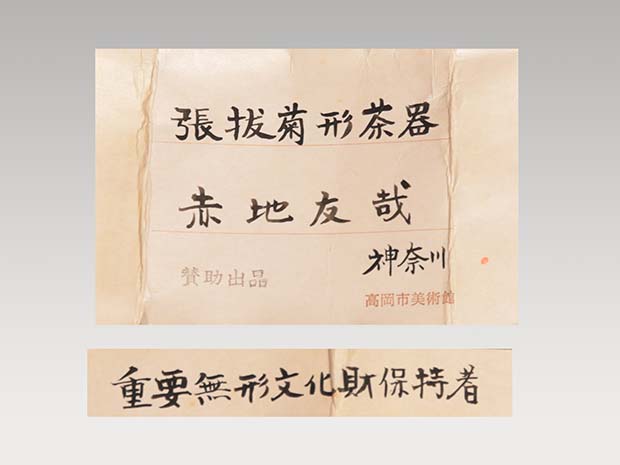 張抜菊形茶器
赤地友哉
神奈川
賛助出品
高岡市美術館
重要無形文化財保持者